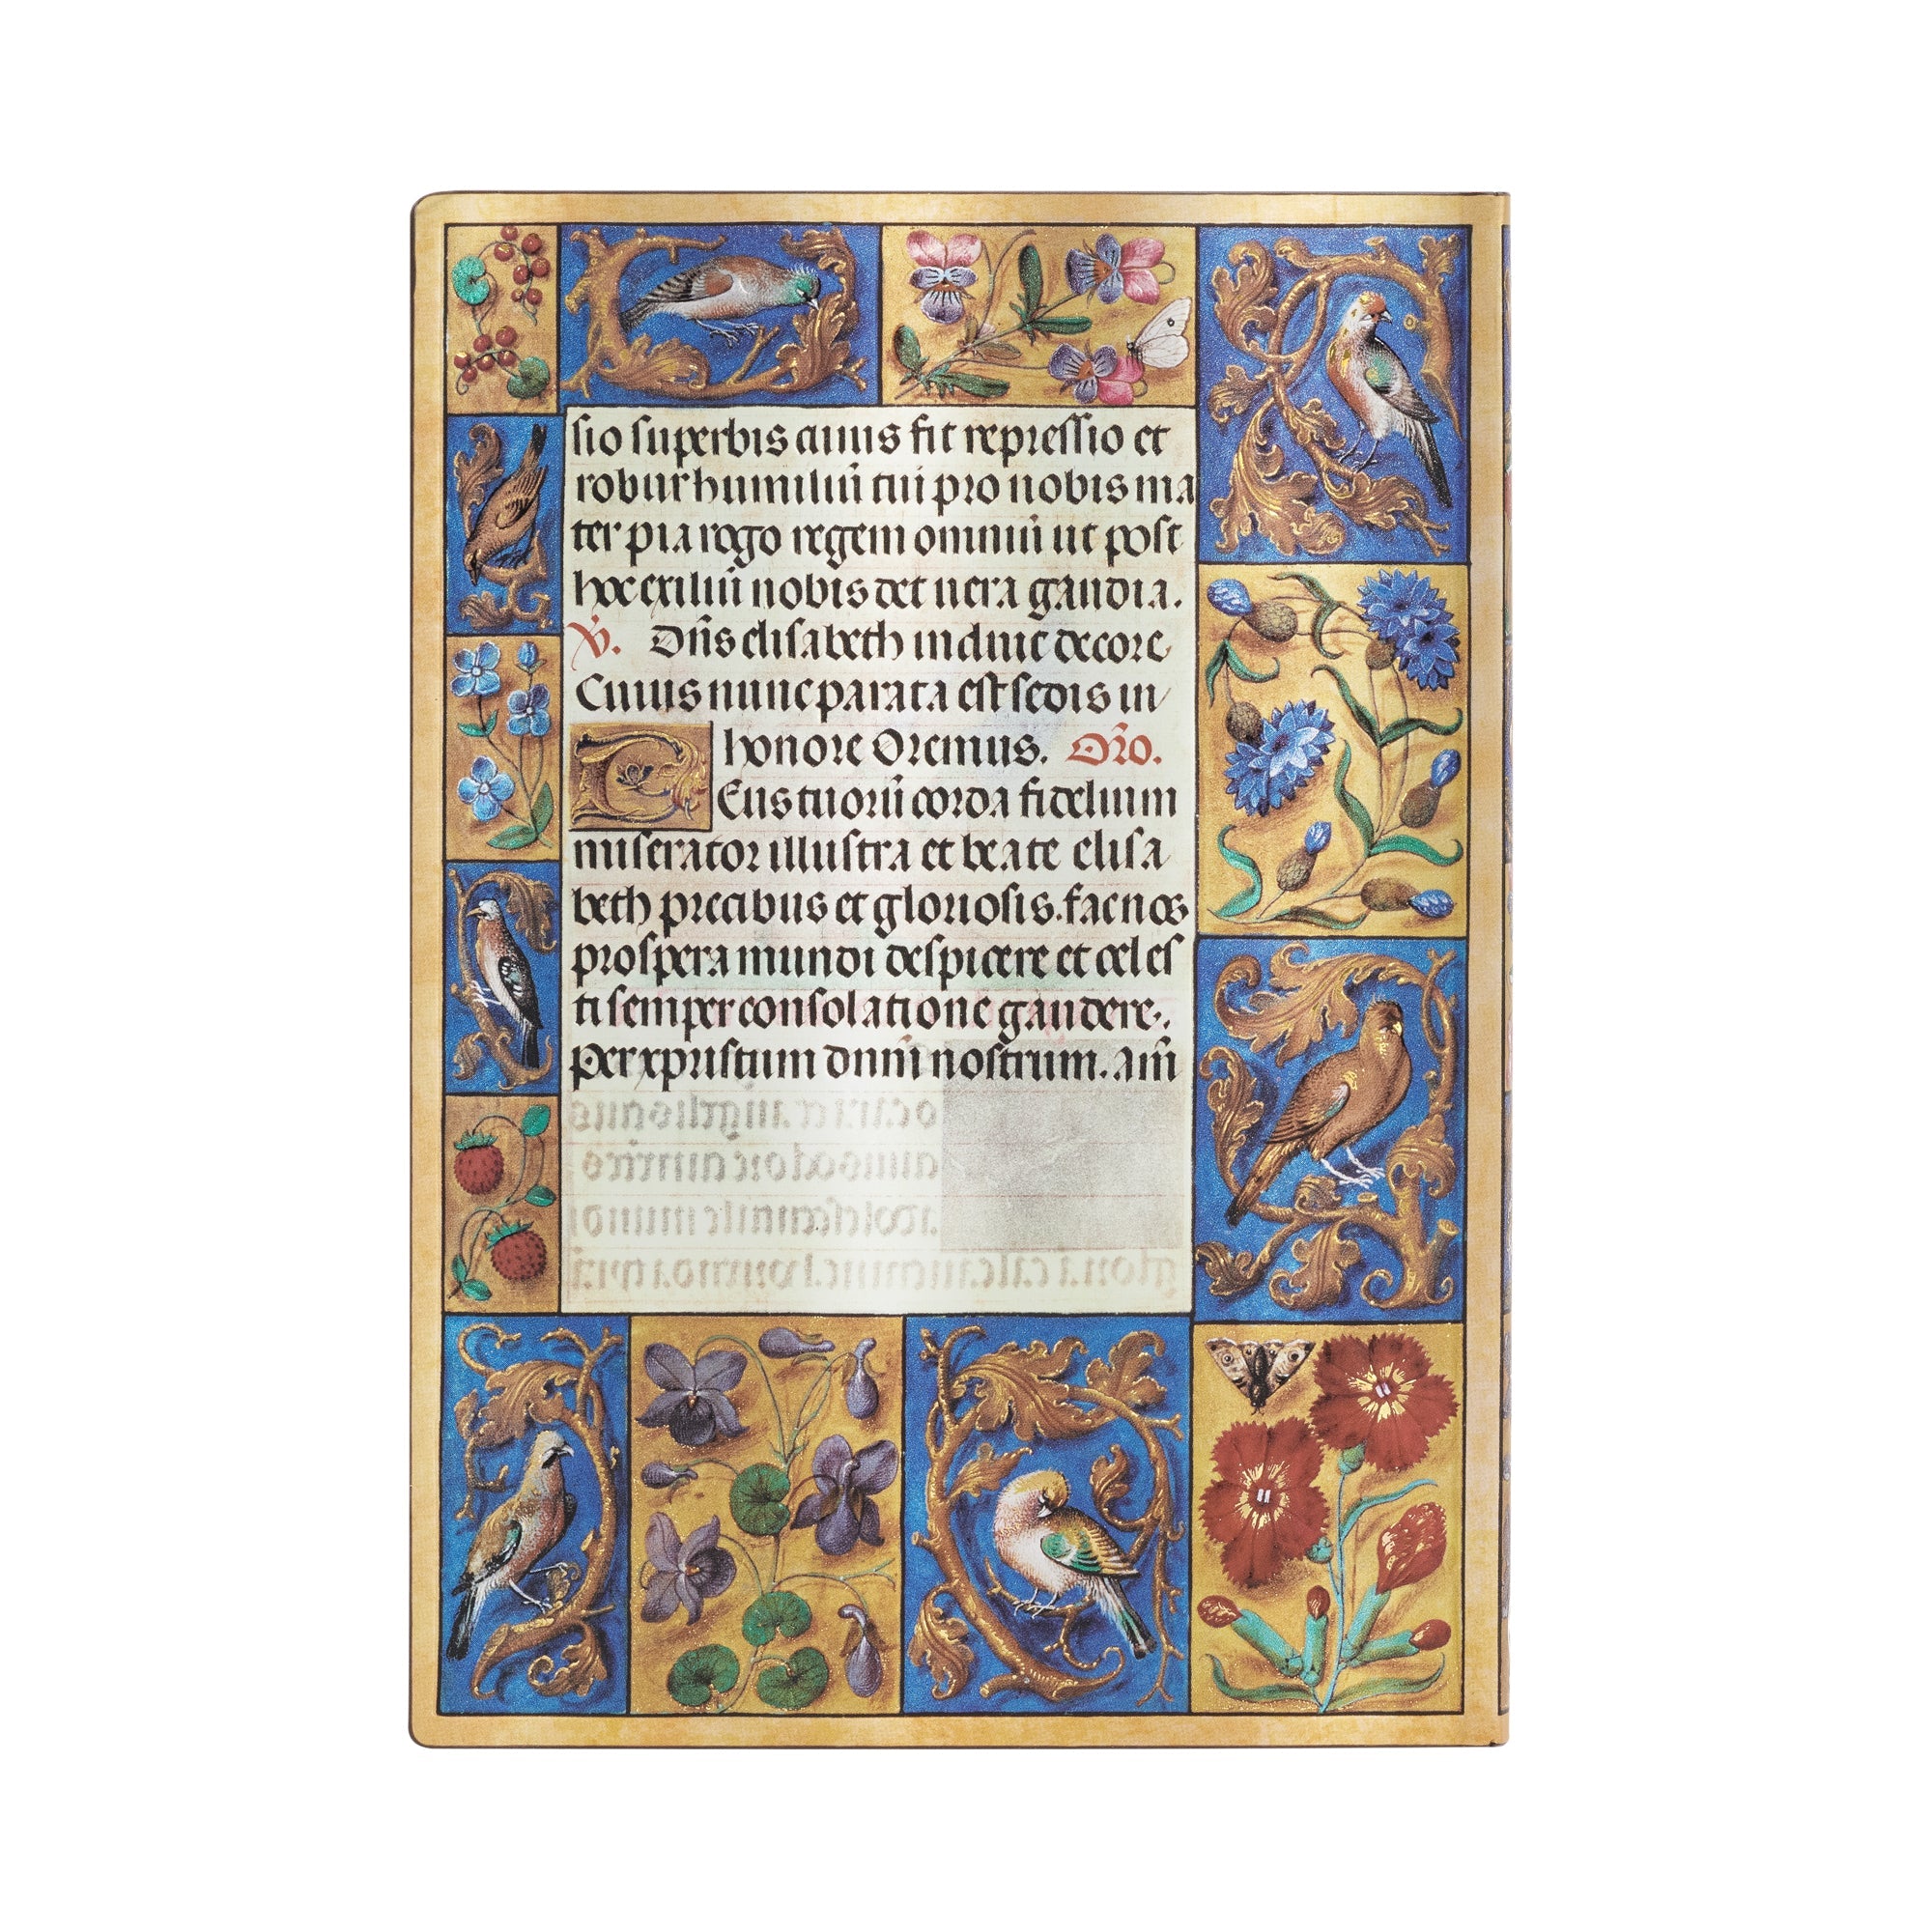 sio superbis cuius fit repressio et
robur humiliū tui pro nobis ma
ter pia rogo regem omniū ut post
hoc exiliū nobis det uera gaudia.
V̇. Dn̄s elisabeth induit decore
Cuius nunc parata est sedis in
honore Oremus. Or̄o.
Deus tuorū corda fidelium
miserator illustra et beate elisa
beth precibus et gloriosis. fac nos
prospera mundi despicere et celes
ti semper consolatione gaudere.
Per xpristum dnm̄ nostrum. Am̄